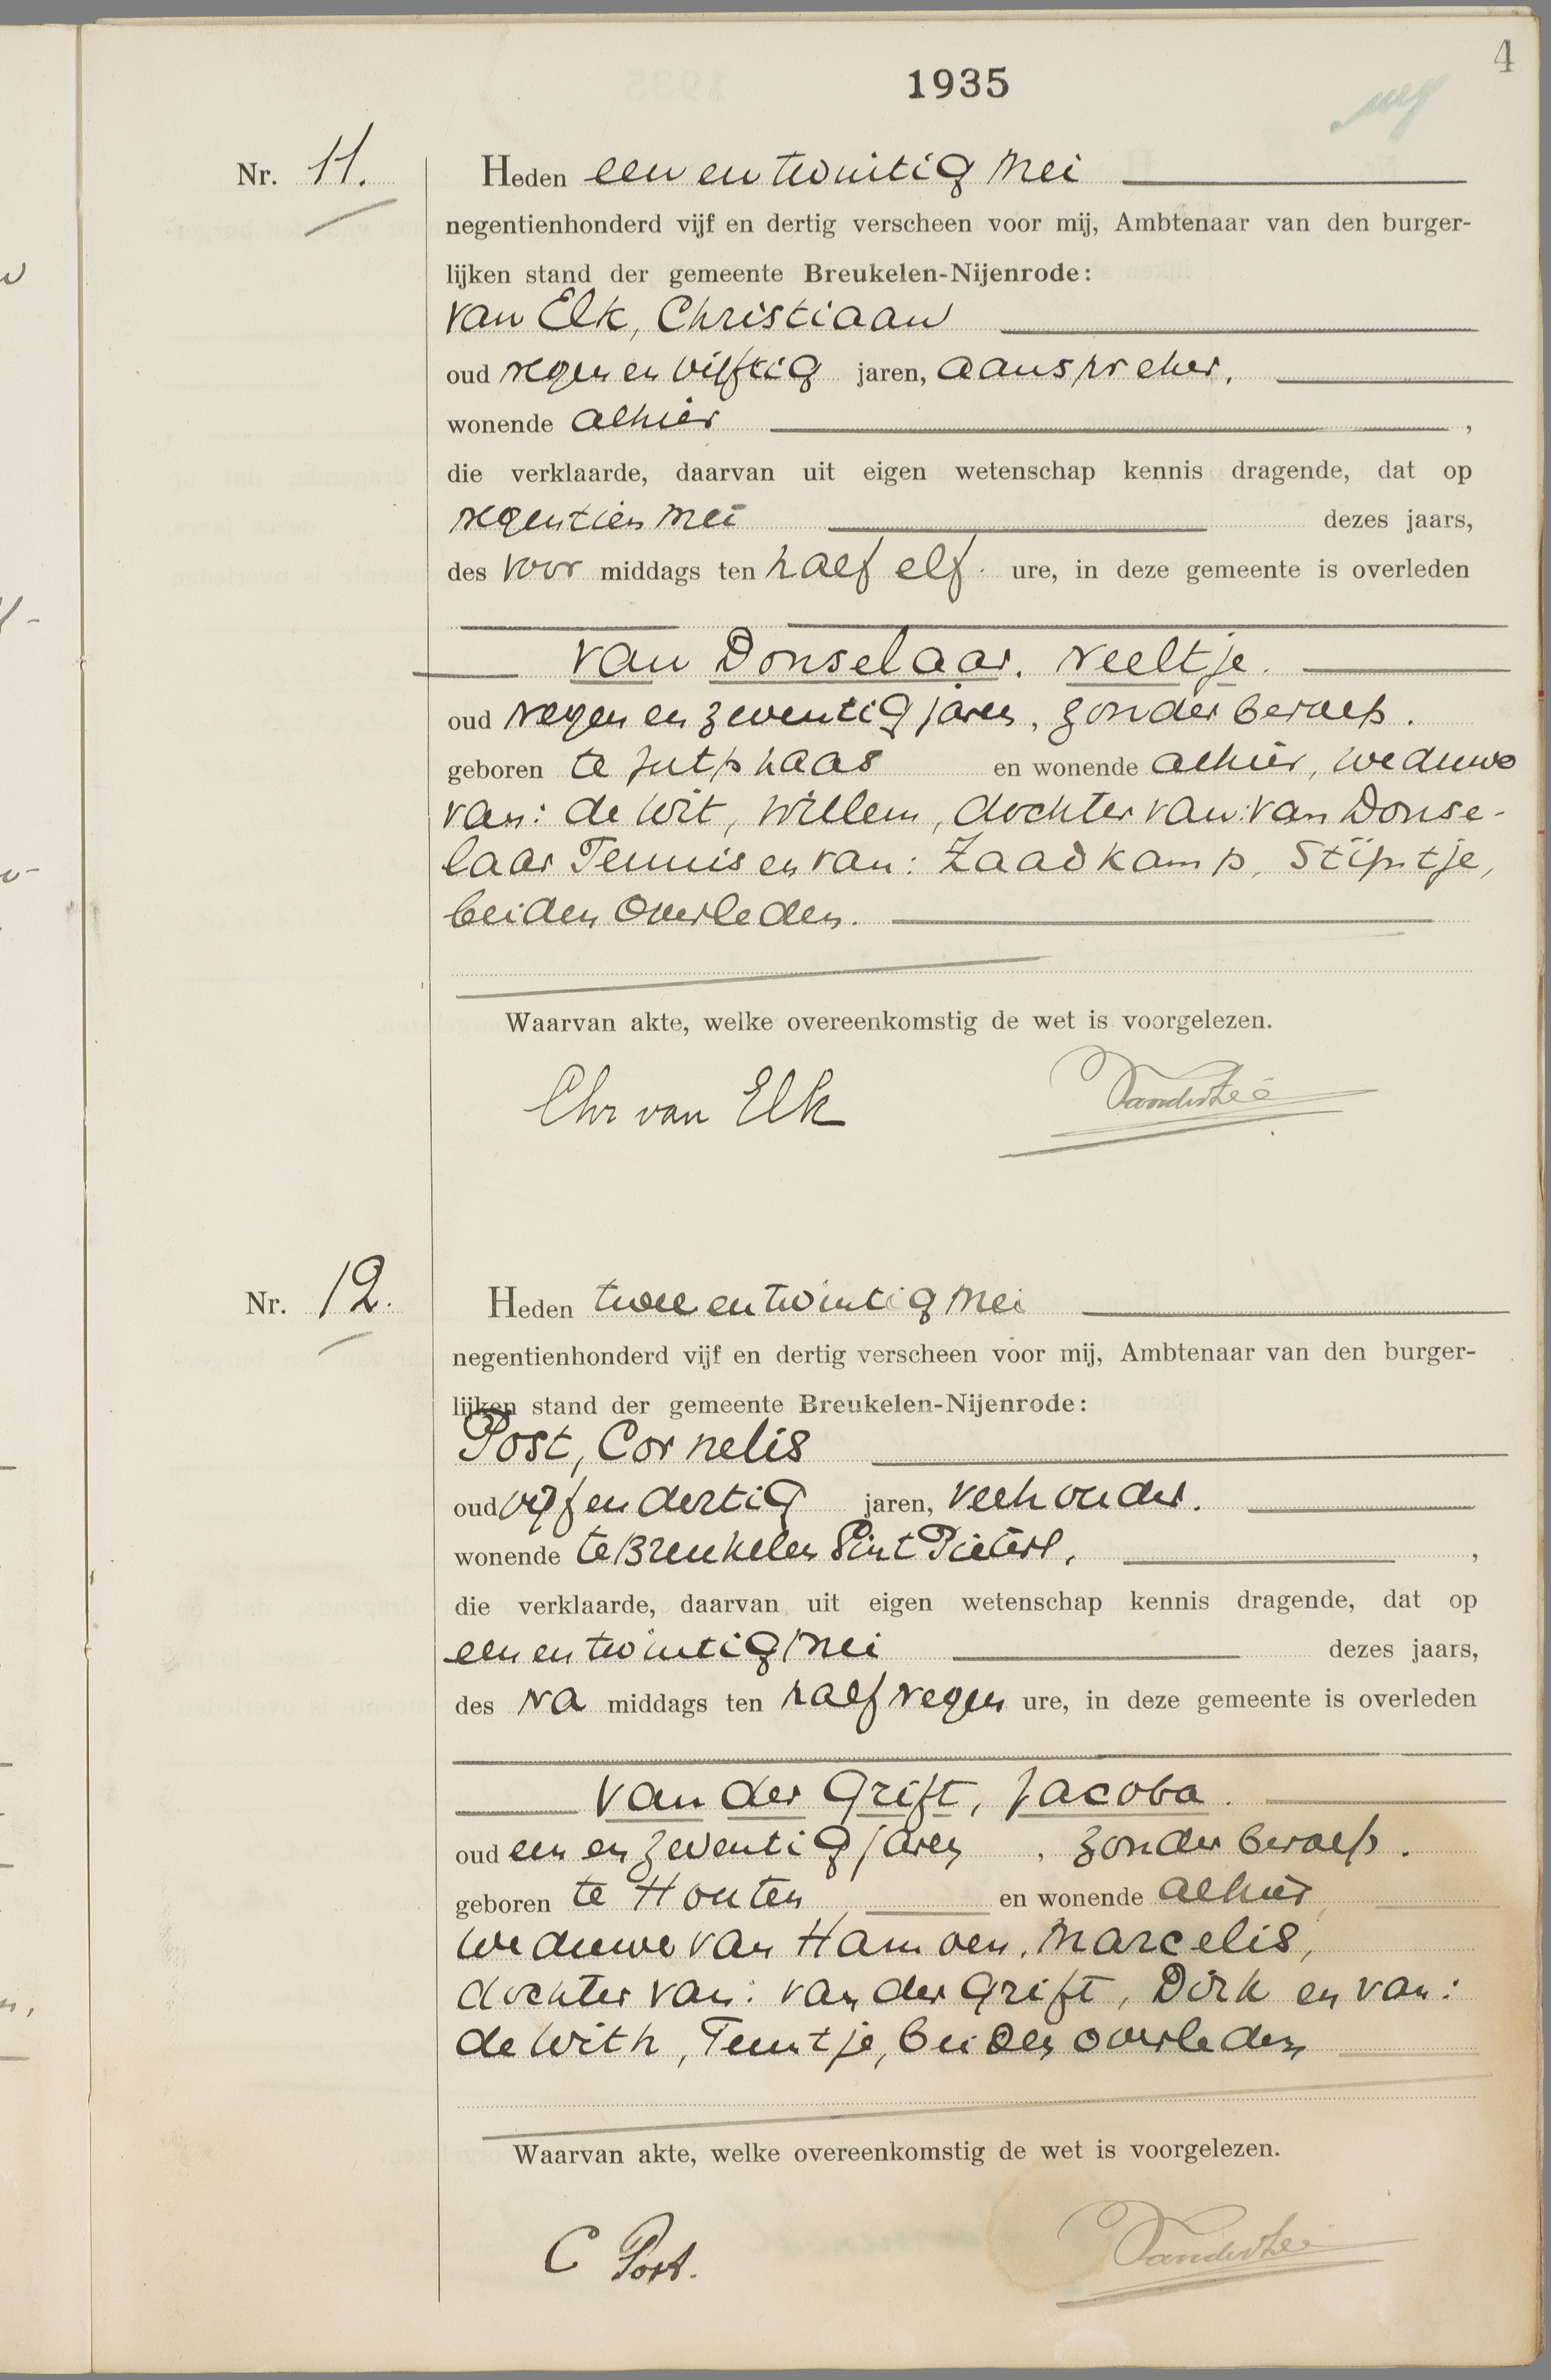 4
1935
Nr. 11.
Heden een en twintig Mei
negentienhonderd vijf en dertig verscheen voor mij, Ambtenaar van den burger-
lijken stand der gemeente Breukelen-Nijenrode:
van Elk, Christiaan
oud negen en vijftig jaren, aanspreker,
wonende alhier ,
die verklaarde, daarvan uit eigen wetenschap kennis dragende, dat op
negentien Mei dezes jaars,
des voor middags ten half elf ure, in deze gemeente is overleden
van Donselaar, Neeltje.
oud negen en zeventig jaren, zonder beroep.
geboren te Jutphaas en wonende alhier, weduwe
van: de Wit, Willem, dochter van: van Donse-
laar Teunis en van: Zaadkamp, Stijntje,
beiden overleden.
Waarvan akte, welke overeenkomstig de wet is voorgelezen.
Chr van Elk
Nr. 12.
Heden twee en twintig Mei
negentienhonderd vijf en dertig verscheen voor mij, Ambtenaar van den burger-
lijken stand der gemeente Breukelen-Nijenrode:
Post, Cornelis
oud vijf en dertig jaren, veehouder.
wonende te Breukelen Sint Pieters, ,
die verklaarde, daarvan uit eigen wetenschap kennis dragende, dat op
een en twintig Mei dezes jaars,
des na middags ten half negen ure, in deze gemeente is overleden
van der Grift, Jacoba.
oud een en zeventig jaren, zonder beroep.
geboren te Houten en wonende alhier,
weduwe van Hamoen, Marcelis,
dochter van: van der Grift, Dirk en van:
de With, Teuntje, beiden overleden
Waarvan akte, welke overeenkomstig de wet is voorgelezen.
C Post.